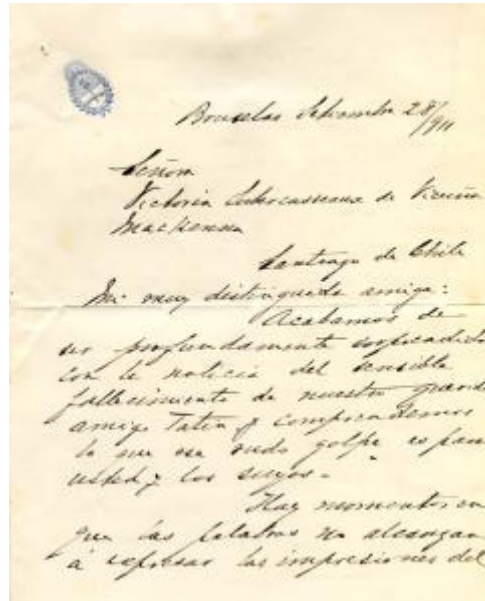 Bruselas Setiembre 28/911
Señora
Victoria Subercaseaux de Vicuña
Mackenna
Santiago de Chile
Mi muy distinguida amiga:
Acabamos de
ser profundamente sorprendidos
con la noticia del sensible
fallecimiento de nuestro querido
amigo y comprendemos
lo que ese rudo golpe es para
usted y los suyos.
Hay momentos en
que las palabras no alcanzan
á expresar las impresiones del